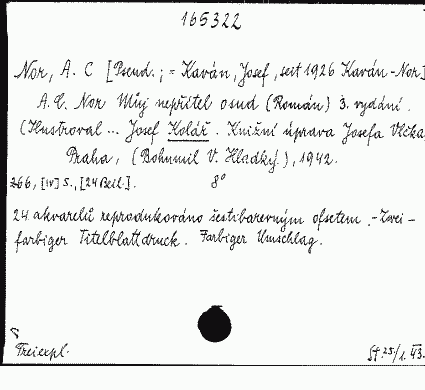 165322
Nor, A. C [Pseud.; = Kaván, Josef, seit 1926 Kaván-Nor]
A. C. Nor Můj nepřítel osud (Román) 3. vydání.
(Ilustroval ... Josef Kolář. Knižní úprava Josefa Vlčka
Praha, (Bohumil V. Hladký), 1942.
266, [IV] S., [24 Beil.]. 8°
24 akvarelů reprodukováno šestibarevným ofsetem. - Zwei-
farbiger Titelblattdruck. Farbiger Umschlag.
Freiexpl. St. 25/1. 43.